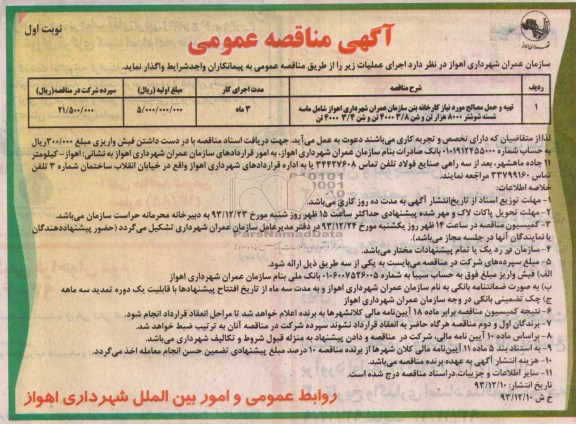 نوبت اول
آگهی مناقصه عمومی
سازمان عمران شهرداری اهواز در نظر دارد اجرای عملیات زیر را از طریق مناقصه عمومی به پیمانکاران واجدشرایط واگذار نماید.
ردیف شرح مناقصه مدت اجرای کار مبلغ اولیه (ریال) سپرده شرکت در مناقصه(ریال)
۱ تهیه و حمل مصالح مورد نیاز کارخانه بتن سازمان عمران شهرداری اهواز شامل ماسه ۳ ماه ۵/۰۰۰/۰۰۰/۰۰۰ ۲۱/۵۰۰/۰۰۰
شسته شوشتر ۸۰۰۰ هزار تن و شن ۳/۸ ۴۰۰۰ تن و شن ۳/۴ ۴۰۰۰ تن
لذا از متقاضیان که دارای تخصص و تجربه کاری می‌باشند دعوت به عمل می‌آید. جهت دریافت اسناد مناقصه با در دست داشتن فیش واریزی مبلغ ۳۰۰/۰۰۰ریال
به حساب شماره ۰۱۰۹۱۲۴۵۵۰۰۰ بانک صادرات بنام سازمان عمران شهرداری اهواز، به امور قراردادهای سازمان عمران شهرداری اهواز به نشانی: اهواز- کیلومتر
۱۱ جاده ماهشهر، بعد از سه راهی صنایع فولاد تلفن تماس ۳۴۴۲۷۶۰۸ یا به اداره قراردادهای شهرداری اهواز واقع در خیابان انقلاب ساختمان شماره ۳ تلفن
تماس ۳۳۷۹۹۱۶۰ مراجعه نمایند.
خلاصه اطلاعات:
۱- مهلت توزیع اسناد از تاریخ انتشار آگهی به مدت ده روز کاری می‌باشد.
۲- مهلت تحویل پاکات لاک و مهر شده پیشنهادی حداکثر ساعت ۱۵ ظهر روز شنبه مورخ ۹۳/۱۲/۲۳ به دبیرخانه محرمانه حراست سازمان می‌باشد.
۳- کمیسیون مناقصه در ساعت ۱۴ ظهر روز یکشنبه مورخ ۹۳/۱۲/۲۴ در دفتر مدیرعامل سازمان عمران شهرداری تشکیل می‌گردد (حضور پیشنهاددهندگان
یا نمایندگان آنها در جلسه مجاز می‌باشد).
۴- سازمان در رد یک یا تمام پیشنهادات مختار می‌باشد.
۵- مبلغ سپرده‌های شرکت در مناقصه می‌بایست به یکی از سه طریق ذیل ارائه شود.
الف) فیش واریز مبلغ فوق به حساب سیبا به شماره ۰۱۰۶۰۰۷۵۲۶۰۰۵ بانک ملی بنام سازمان عمران شهرداری اهواز
ب) به صورت ضمانتنامه بانکی به نام سازمان عمران شهرداری اهواز و به مدت سه ماه از تاریخ افتتاح پیشنهادها با قابلیت یک دوره تمدید سه ماهه
ج) چک تضمینی بانکی در وجه سازمان عمران شهرداری اهواز
۶- نتیجه کمیسیون مناقصه برابر ماده ۱۸ آیین‌نامه مالی کلانشهرها به برنده اعلام خواهد شد تا مراحل انعقاد قرارداد انجام شود.
۷- برندگان اول و دوم مناقصه هرگاه حاضر به انعقاد قرارداد نشوند سپرده شرکت در مناقصه آنان به ترتیب ضبط خواهد شد.
۸- براساس ماده ۱۰ آیین نامه مالی، شرکت در مناقصه و دادن پیشنهاد به منزله قبول شروط و تکالیف شهرداری می‌باشد.
۹- به استناد بند ۵ ماده ۱۱ آیین‌نامه مالی کلان شهرها از برنده مناقصه ۱۰ درصد مبلغ پیشنهادی تضمین حسن انجام معامله اخذ می‌گردد.
۱۰- هزینه انتشار آگهی به عهده برنده مناقصه می‌باشد.
۱۱- سایر اطلاعات و جزییات دراسناد مناقصه درج شده است.
تاریخ انتشار: ۹۳/۱۲/۱۰
خ ش ۹۳/۱۲/۱۰
روابط عمومی و امور بین الملل شهرداری اهواز
ParsNamadData